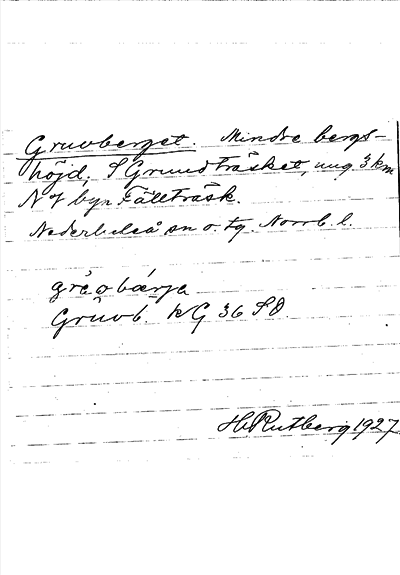 Gruvberget. Mindre bergs-
höjd, S Grundträsket, ung 3 km
N f byn Fällträsk.
Nederluleå sn o. tg. Norrb. l.
Gruvb. KG 36 SO.
H. Rutberg 1927.